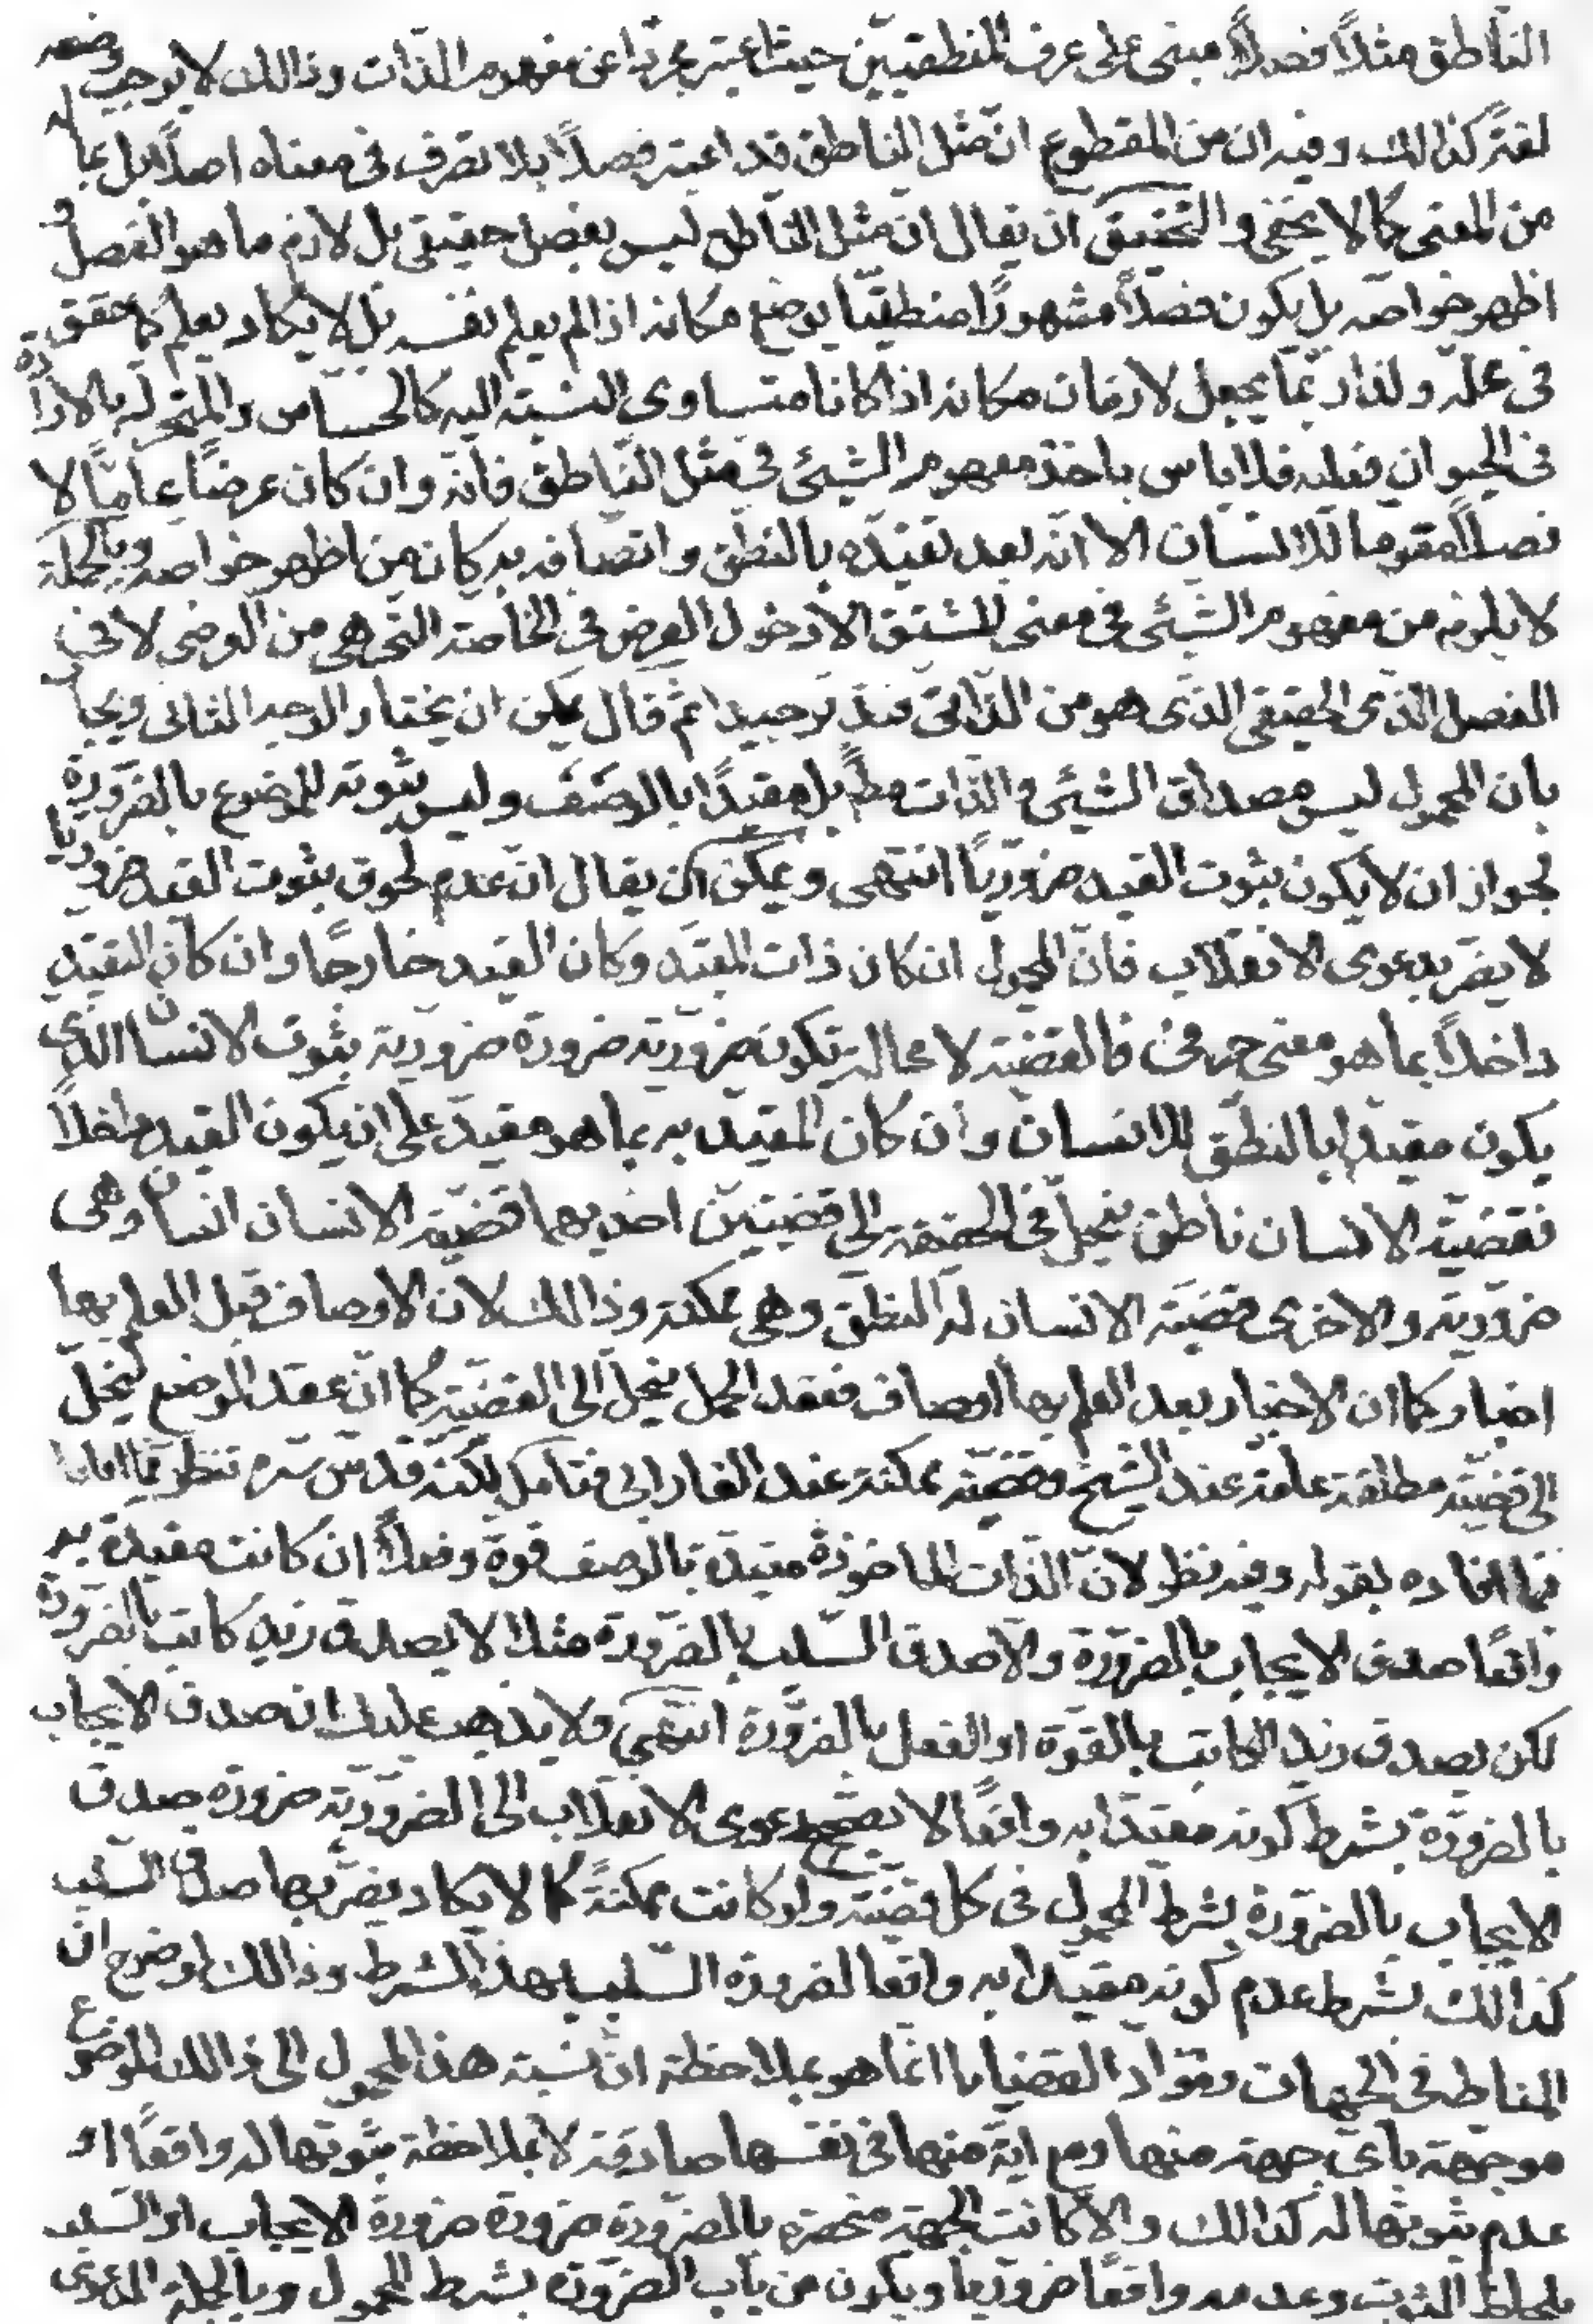 الناطق مثلاً فصلاً مبنى على عرف المنطقيين حيث اعتبر مجرّدا عن مفهوم الذات وذالك لا يوجب وضعه
لغتر كذالك وفيه ان من المقطوع انّ مثل الناطق قد اعتبر فصلاً بلا تصرف فى معناه اصلاً بل بما له
من المعنى كما لا يخفى و التحقيق ان يقال انّ مثل الناطق ليس بفصل حقيقى بل لازم ما هو الفصل و
اظهر خواصّه بل يكون فصلاً مشهوراً منطقيّا يوضع مكانه اذا لم يعلم نفسه بل لا يكاد يعلم كما حقق
فى محلّه ولذا ربّما يجعل لازمان مكانه اذا كانا متساوى النسبته اليه كالحساس والمتحرك بالارادة
فى الحيوان فعليه فلا باس باخذ مفهوم الشيئى فى مثل الناطق فانّه وان كان عرضاً عامّاً لا
فصلاً مقوما للانسان الا انّه بعد تقيّده بالنطق واتصافه به كان من اظهر خواصه وبالجملة
لا يلزم من مفهوم الشيئى فى معنى المشتق الا دخول العرض فى الخاصته التى هى من العرضى لا فى
الفصل الذى الحقيقى الذى هو من الذاتى فتدّبر جيدا ثم قال يمكن ان يختار الوجه الثانى ويجاب
بان المحمول ليس مصداق الشيئى والذات مطً بل مقيّدًا بالوصف وليس ثبوته للموضوع بالضرورة
لجواز ان لا يكون ثبوت القيد ضروريّاً انتهى ويمكن ان يقال انّ عدم لحوق ثبوت القيد ضروريا
لا يضر بدعوى الانقلاب فانّ المحمول ان كان ذات المقيّد وكان القيد خارجًا وان كان التقيد
داخلاً بما هو معنى حرفى فالقضيّته لا محالته تكون ضروريّته ضرورة ضروريته ثبوت الانسان الذى
يكون مقيّدا بالنطق للانسان وان كان المقيّد به بما هو مقيد على ان يكون القيد داخلاً
فقضيّته الانسان ناطق ينحل فى الحقيقته الى قضيتين احديهما قضيته الانسان انسان وهى
ضروريّته والاخرى قضيّته الانسان له النطق وهى ممكنته وذالك لان الاوصاف قبل العلم بها
اخبار كما ان الاخبار بعد العلم بها اوصاف فعقد الحمل ينحلّ الى القضيّته كما انّ عقد الموضع ينحلّ
الى قضيّته مطلقته عامّته عند الشيخ وقضيّته ممكنته عند الفارابى فتامل لكنّه قدّس سّره تنظر فيما افاده
بقوله وفيه نظر لانّ الذات الماخوذة مقيدّة بالوصف قوة وفعلاً ان كانت مقيدة به
واقعًا صدق الايجاب بالضرورة والا صدق السّلب بالضرورة مثلا لا يصدق زيد كاتب بالضرورة
لكن يصدق زيد الكاتب بالقوّة او الفعل بالضرورة انتهى ولا يذهب عليك ان صدق الايجاب
بالضرورة بشرط كونه مقيّدا به واقعًا لا يصّحح دعوى الانقلاب الى الضروريّته ضرورة صدق
الايجاب بالضرورة بشرط المحمول فى كل قضيّته ولو كانت ممكنةً كما لا يكاد يضرّ بها صدق السّلب
كذالك بشرط عدم كونه مقيدا به واقعا لضرورة السّلب بهذا الشرط وذالك لوضوح انّ
المناط فى الجهات ومواد القضايا انما هو بملاحظة انّ نسبته هذا المحمول الى ذالك الموضوع
موجّهته باىّ جهته منها ومع ايّة منها فى نفسها صادقته لا بملاحظة ثبوتها له واقعًا او
عدم ثبوتها له كذالك والّا كانت الجهته منحصره بالضرورة ضرورة ضرورة الايجاب او السّلب
بلحاظ الثبوت وعدمه واقعًا ضروريا ويكون من باب الضرورة بشرط المحمول وبالجملة المدعى